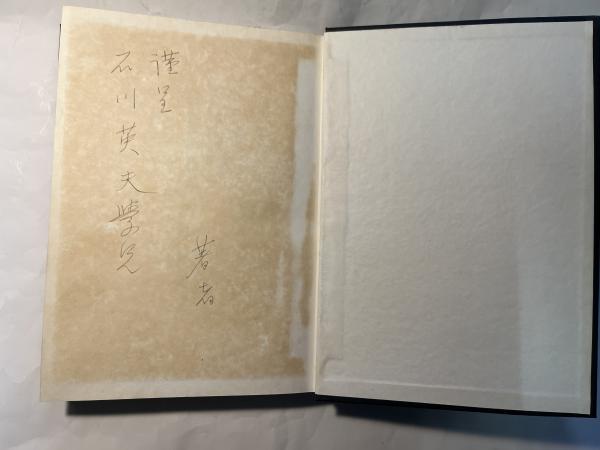 著者
謹呈
石川英夫學兄